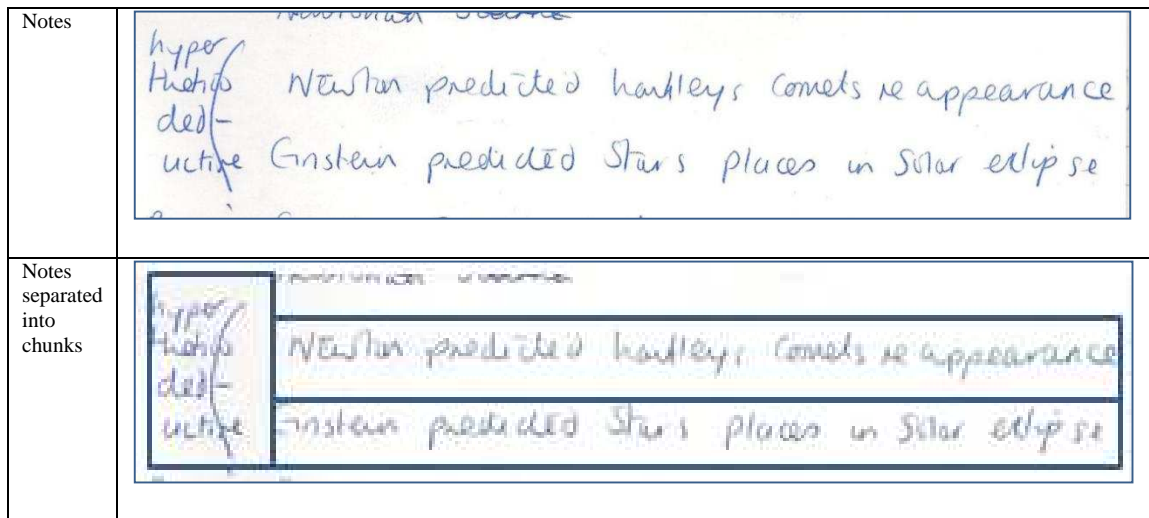 Notes
hyper
thetico
ded-
uctive
Newton predicted hawkleys comets re appearance
Einstein predicted Stars places in Solar eclipse
Notes
separated
into
chunks
hyper
thetico
ded-
uctive
Newton predicted hawkleys comets re appearance
Einstein predicted Stars places in Solar eclipse